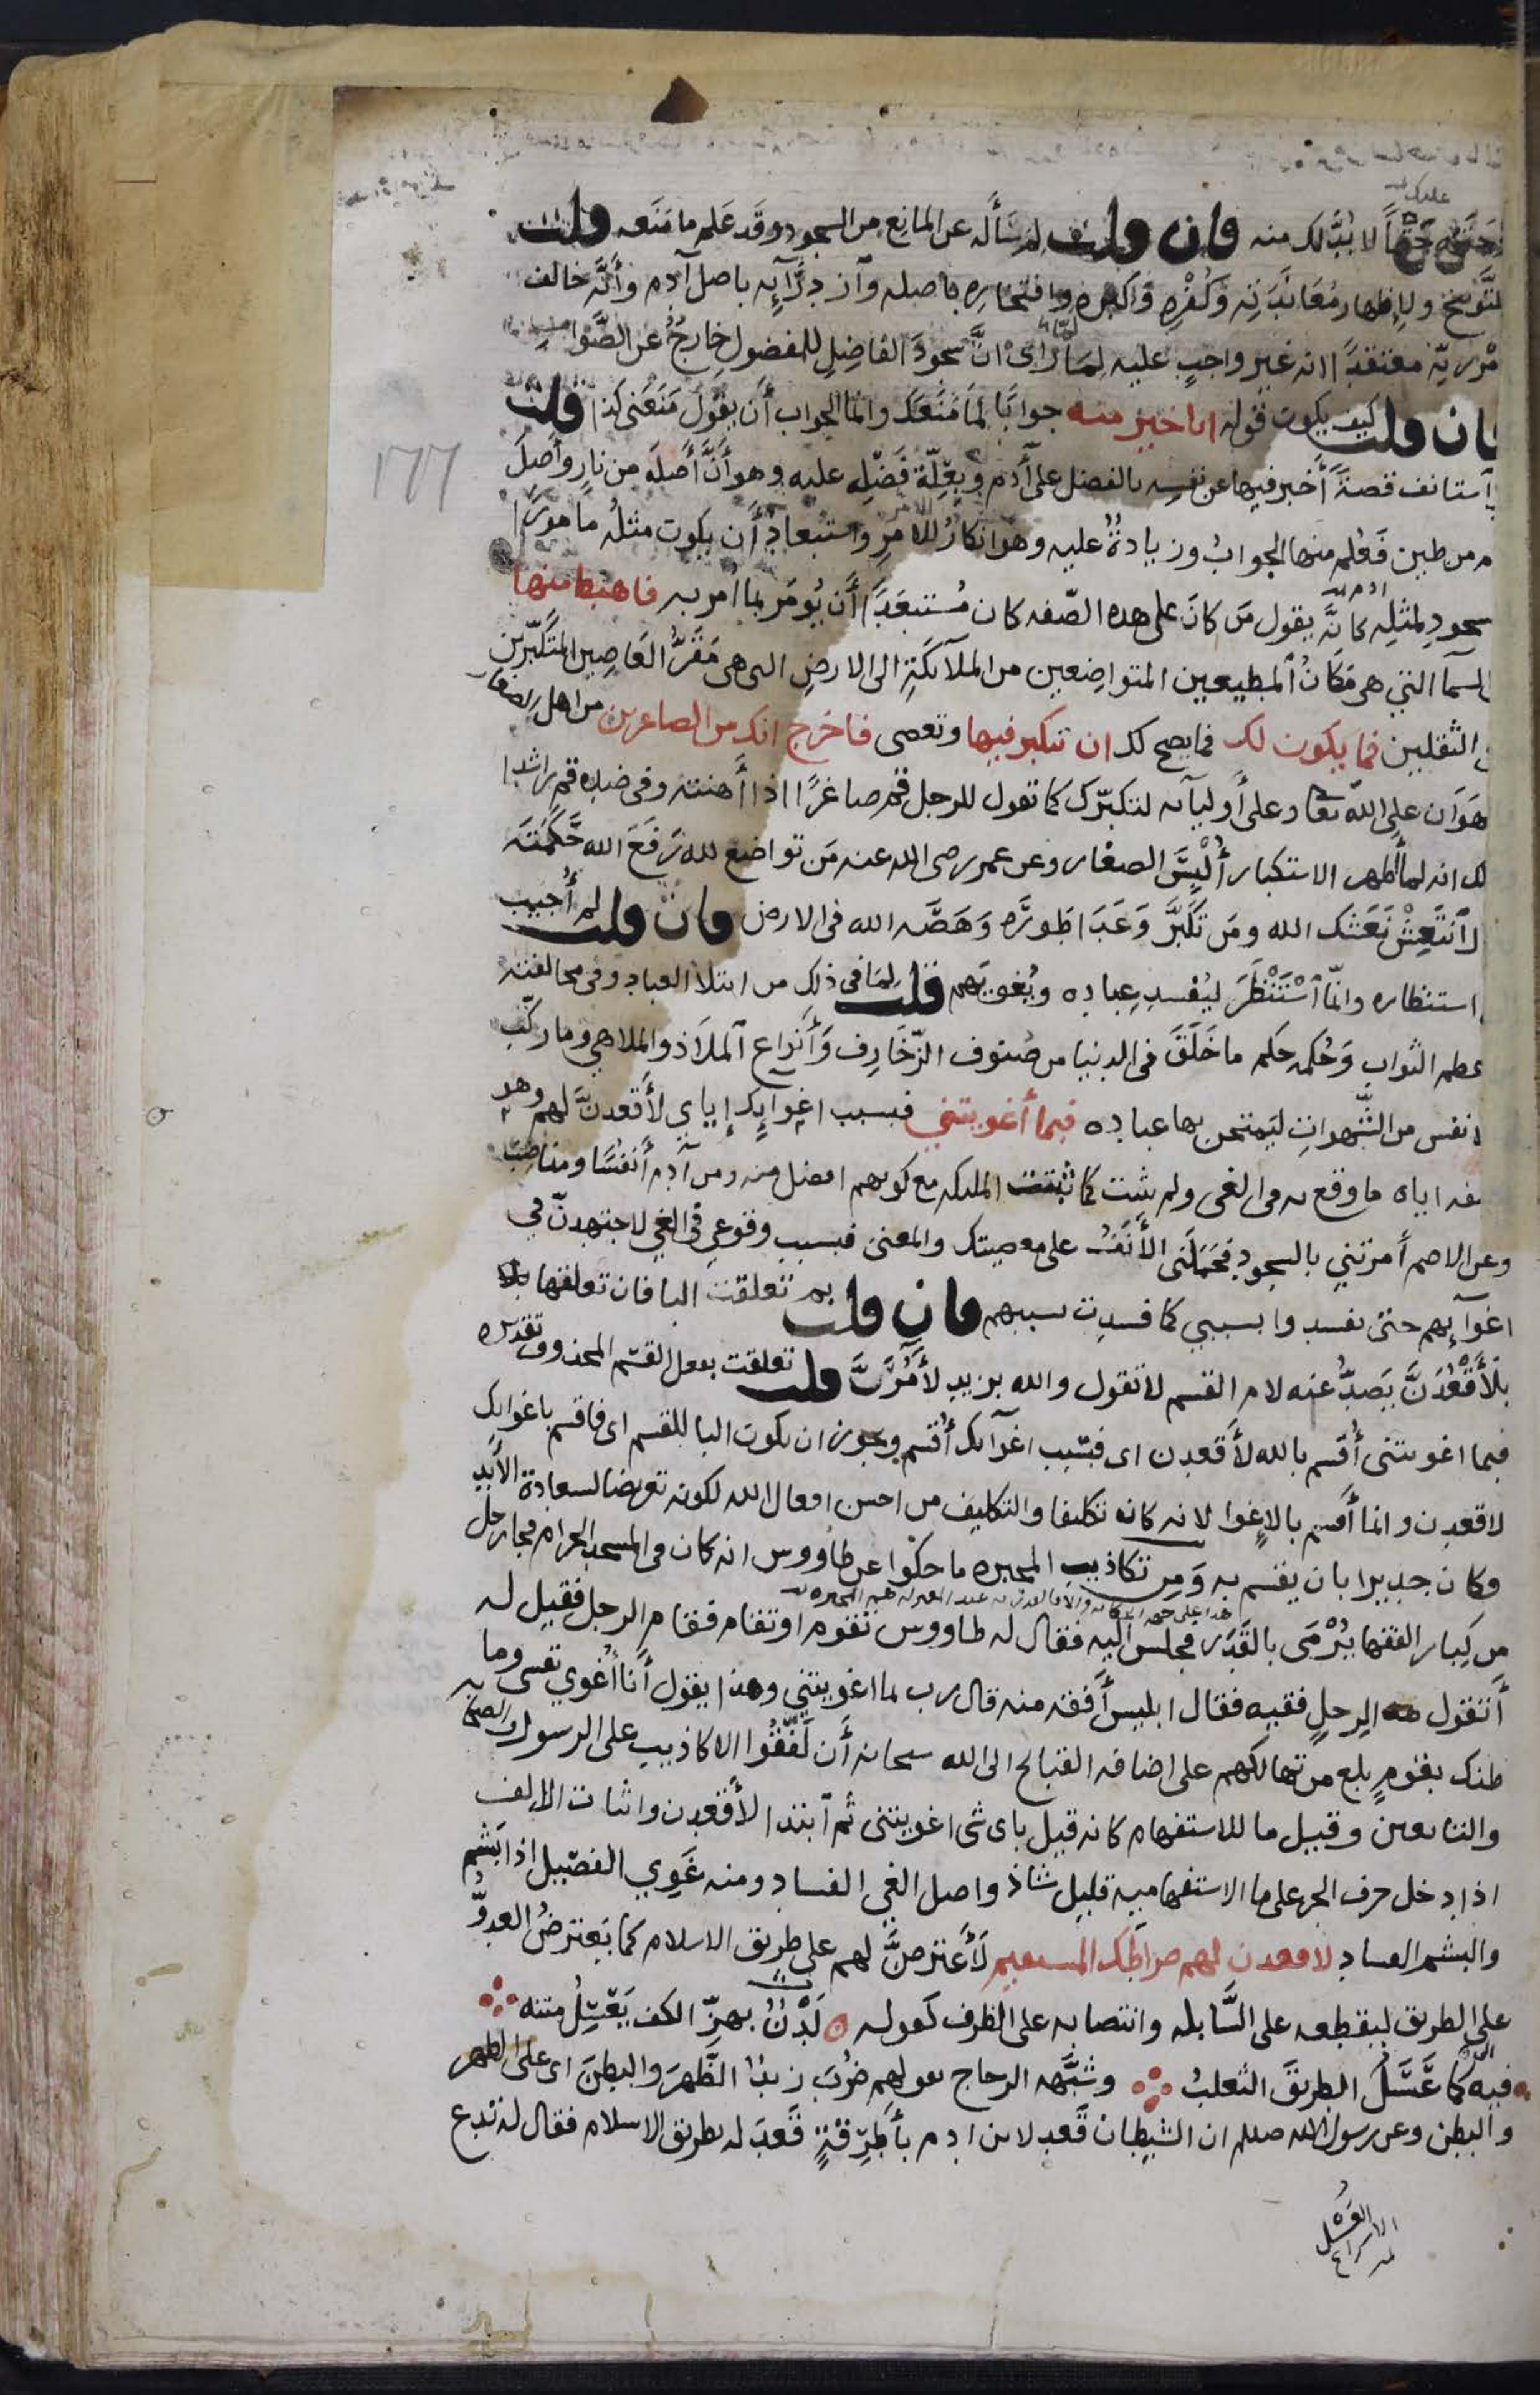 عليك
حتما لا بد لك منه فان قلت لم سأله عن المانع من السجود وقد علم ما منعه قلت
للتوبيخ ولإظهار معاندته وكفره وكبره وافتخاره باصله وازدرآئه باصل آدم وأنه خالف
امر ربه معتقدا انه غير واجب عليه لما رأى ان سجود الفاضل للمفضول خارج عن الصواب
فان قلت كيف يكون قوله انا خير منه جوابا لما منعك وانما الجواب أن يقول منعنى كذا قلت
قد آستانف قصة أخبر فيها عن نفسه بالفضل على آدم وبعلة فضله عليه وهو أن أصله من نار وأصل
١٦٦
آدم من طين فعلم منها الجواب وزيادة عليه وهو انكار للامر واستبعاد أن يكون مثله مامورا
بالسجود لمثله كانه يقول من كان على هذه الصفه كان مستبعدا أن يؤمر بما امر به فاهبط منها
من السما التي هي مكان المطيعين المتواضعين من الملآئكة الى الارض التى هى مقر العاصين المتكبرين
من الثقلين فما يكون لك فما يصح لك ان تتكبر فيها وتعصى فاخرج انك من الصاغرين من اهل الصغار
والهوان على الله تعا وعلى أوليآئه لتكبرك كما تقول للرجل قم صاغرا اذا أهنته وفى ضده قم راشدا
وذلك انه لما أظهر الاستكبار ألبس الصغار وعن عمر رضى الله عنه من تواضع لله رفع الله حكمته
وقال آنتعش نعشك الله ومن تكبر وعدا طوره وهصه الله فى الارض فان قلت لم أجيب
الى استنظاره وانما آستنظر ليفسد عباده ويغويهم قلت لما فى ذلك من ابتلا العباد وفى مخالفته
من عظم الثواب وحكمه حكم ما خلق فى الدنيا من صنوف الزخارف وأنواع الملاذ والملاهى وما ركب
فى الانفس من الشهوات ليمتحن بها عباده فبما أغويتني فبسبب اغوآيك إياى لأقعدن لهم وهو
تكليفه اياه ما وقع به فى الغى ولم يثبت كما ثبتت الملئكه مع كونهم افضل منه ومن آدم أنفسا ومناصب
وعن الاصم أمرتني بالسجود فحملنى الأنف على معصيتك والمعنى فبسبب وقوعى فى الغي لاجتهدن في
اغوآئهم حتى يفسدوا بسببي كما فسدت بسببهم فان قلت بم تعلقت البا فان تعلقها
بلأقعدن يصد عنه لام القسم لا تقول والله بزيد لأمرن قلت تعلقت بفعل القسم المحذوف تقديره
فبما اغويتنى أقسم بالله لأقعدن اى فبسبب اغوآئك أقسم ويجوز ان يكون البا للقسم اى فاقسم باغوائك
لاقعدن وانما أقسم بالإغوا لانه كان تكليفا والتكليف من احسن افعال الله لكونه تعريضا لسعادة الأبد
وكان جديرا بان يقسم به ومن تكاذيب المجبره ما حكوا عن طاووس انه كان فى المسجد الحرام فجا رجل
من كبار الفقها يرمى بالقدر فجلس اليه فقال له طاووس تقوم او تقام فقام الرجل فقيل له
أتقول هذا لرجل فقيه فقال ابليس أفقه منه قال رب بما اغويتني وهذا يقول أنا أغوي نفسى وما
ظنك بقوم بلغ من تهالكهم على اضافه القبائح الى الله سبحانه أن لفقوا الاكاذيب على الرسول والصحابه
والتابعين وقيل ما للاستفهام كانه قيل باى شى اغويتنى ثم آبتدا لأقعدن واثبات الالف
اذا دخل حرف الجر على ما الاستفهاميه قليل شاذ واصل الغي الفساد ومنه غوي الفصيل اذا بشم
والبشم الفساد لاقعدن لهم صراطك المستقيم لأعترضن لهم على طريق الاسلام كما يعترض العدو
على الطريق ليقطعه على السابله وانتصابه على الظرف كقوله لدن بهز الكف يعسل متنه
فيه كما عسل الطريق الثعلب وشبهه الزجاج بقولهم ضرب زيد الظهر والبطن اى على الظهر
والبطن وعن رسول الله صلعم ان الشيطان قعد لابن ادم بأطرقة قعد له بطريق الاسلام فقال له تدع